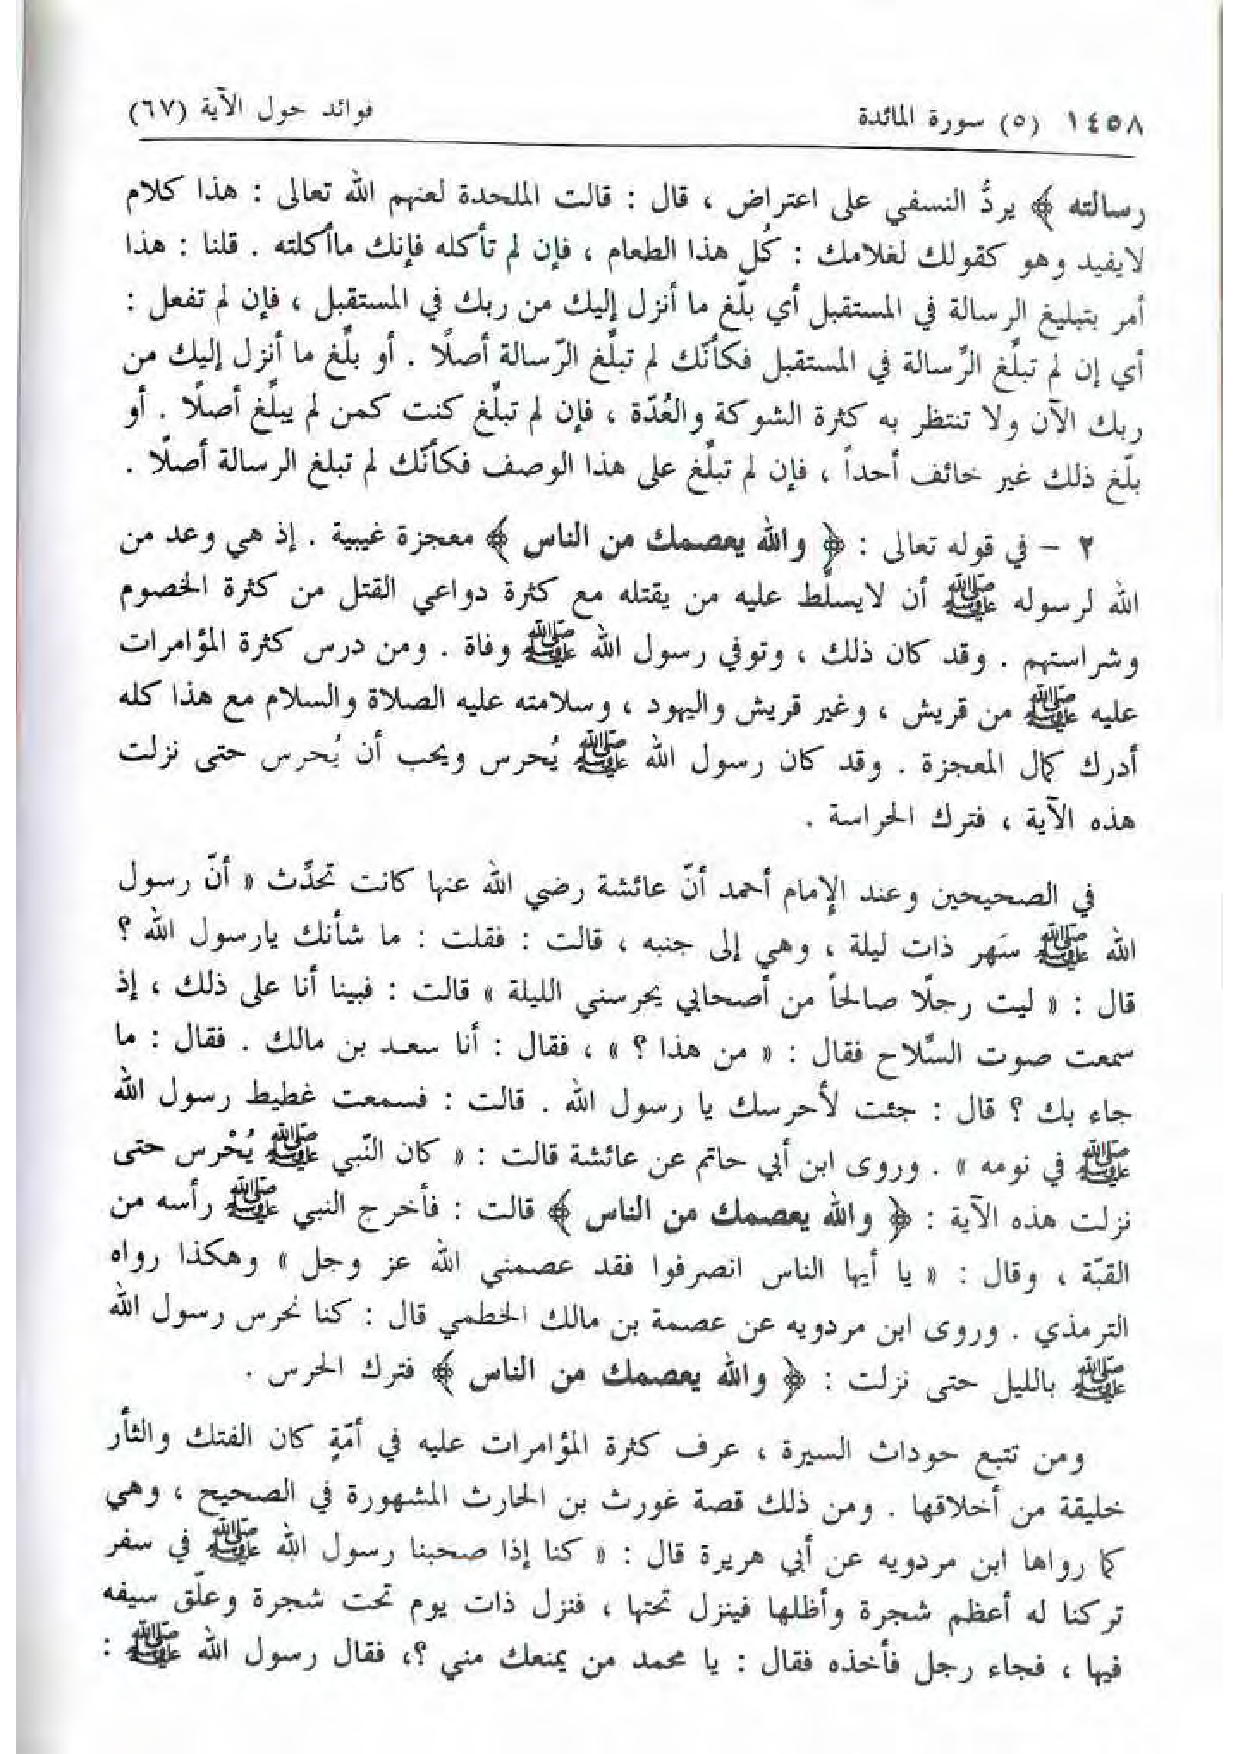 ١٤٥٨ (٥) سورة المائدة
فوائد حول الآية (٦٧)
رسالته ﴾ يردُّ النسفي على اعتراض ، قال : قالت الملحدة لعنهم الله تعالى : هذا كلام
لايفيد وهو كقولك لغلامك : كُل هذا الطعام ، فإن لم تأكله فإنك ماأكلته . قلنا : هذا
أمر بتبليغ الرسالة في المستقبل أي بلّغ ما أنزل إليك من ربك في المستقبل ، فإن لم تفعل :
أي إن لم تبلّغ الرِّسالة في المستقبل فكأنّك لم تبلّغ الرّسالة أصلًا . أو بلّغ ما أنزل إليك من
ربك الآن ولا تنتظر به كثرة الشوكة والعُدّة ، فإن لم تبلّغ كنت كمن لم يبلّغ أصلًا . أو
بلّغ ذلك غير خائف أحداً ، فإن لم تبلّغ على هذا الوصف فكأنّك لم تبلغ الرسالة أصلًا .
٢ – في قوله تعالى : ﴿ والله يعصمك من الناس ﴾ معجزة غيبية . إذ هي وعد من
الله لرسوله ﷺ أن لايسلّط عليه من يقتله مع كثرة دواعي القتل من كثرة الخصوم
وشراستهم . وقد كان ذلك ، وتوفي رسول الله ﷺ وفاة . ومن درس كثرة المؤامرات
عليه ﷺ من قريش ، وغير قريش واليهود ، وسلامته عليه الصلاة والسلام مع هذا كله
أدرك كمال المعجزة . وقد كان رسول الله ﷺ يُحرس ويحب أن يُحرس حتى نزلت
هذه الآية ، فترك الحراسة .
في الصحيحين وعند الإمام أحمد أنّ عائشة رضي الله عنها كانت تحدِّث « أنّ رسول
الله ﷺ سَهر ذات ليلة ، وهي إلى جنبه ، قالت : فقلت : ما شأنك يارسول الله ؟
قال : « ليت رجلًا صالحاً من أصحابي يحرسني الليلة » قالت : فبينا أنا على ذلك ، إذ
سمعت صوت السِّلاح فقال : « من هذا ؟ » ، فقال : أنا سعد بن مالك . فقال : ما
جاء بك ؟ قال : جئت لأحرسك يا رسول الله . قالت : فسمعت غطيط رسول الله
ﷺ في نومه » . وروى ابن أبي حاتم عن عائشة قالت : « كان النّبي ﷺ يُحْرس حتى
نزلت هذه الآية : ﴿ والله يعصمك من الناس ﴾ قالت : فأخرج النبي ﷺ رأسه من
القبّة ، وقال : « يا أيها الناس انصرفوا فقد عصمني الله عز وجل » وهكذا رواه
الترمذي . وروى ابن مردويه عن عصمة بن مالك الخطمي قال : كنا نحرس رسول الله
ﷺ بالليل حتى نزلت : ﴿ والله يعصمك من الناس ﴾ فترك الحرس .
ومن تتبع حوداث السيرة ، عرف كثرة المؤامرات عليه في أمّةٍ كان الفتك والثأر
خليقة من أخلاقها . ومن ذلك قصة غورث بن الحارث المشهورة في الصحيح ، وهي
كما رواها ابن مردويه عن أبي هريرة قال : « كنا إذا صحبنا رسول الله ﷺ في سفر
تركنا له أعظم شجرة وأظلها فينزل تحتها ، فنزل ذات يوم تحت شجرة وعلّق سيفه
فيها ، فجاء رجل فأخذه فقال : يا محمد من يمنعك مني ؟، فقال رسول الله ﷺ :